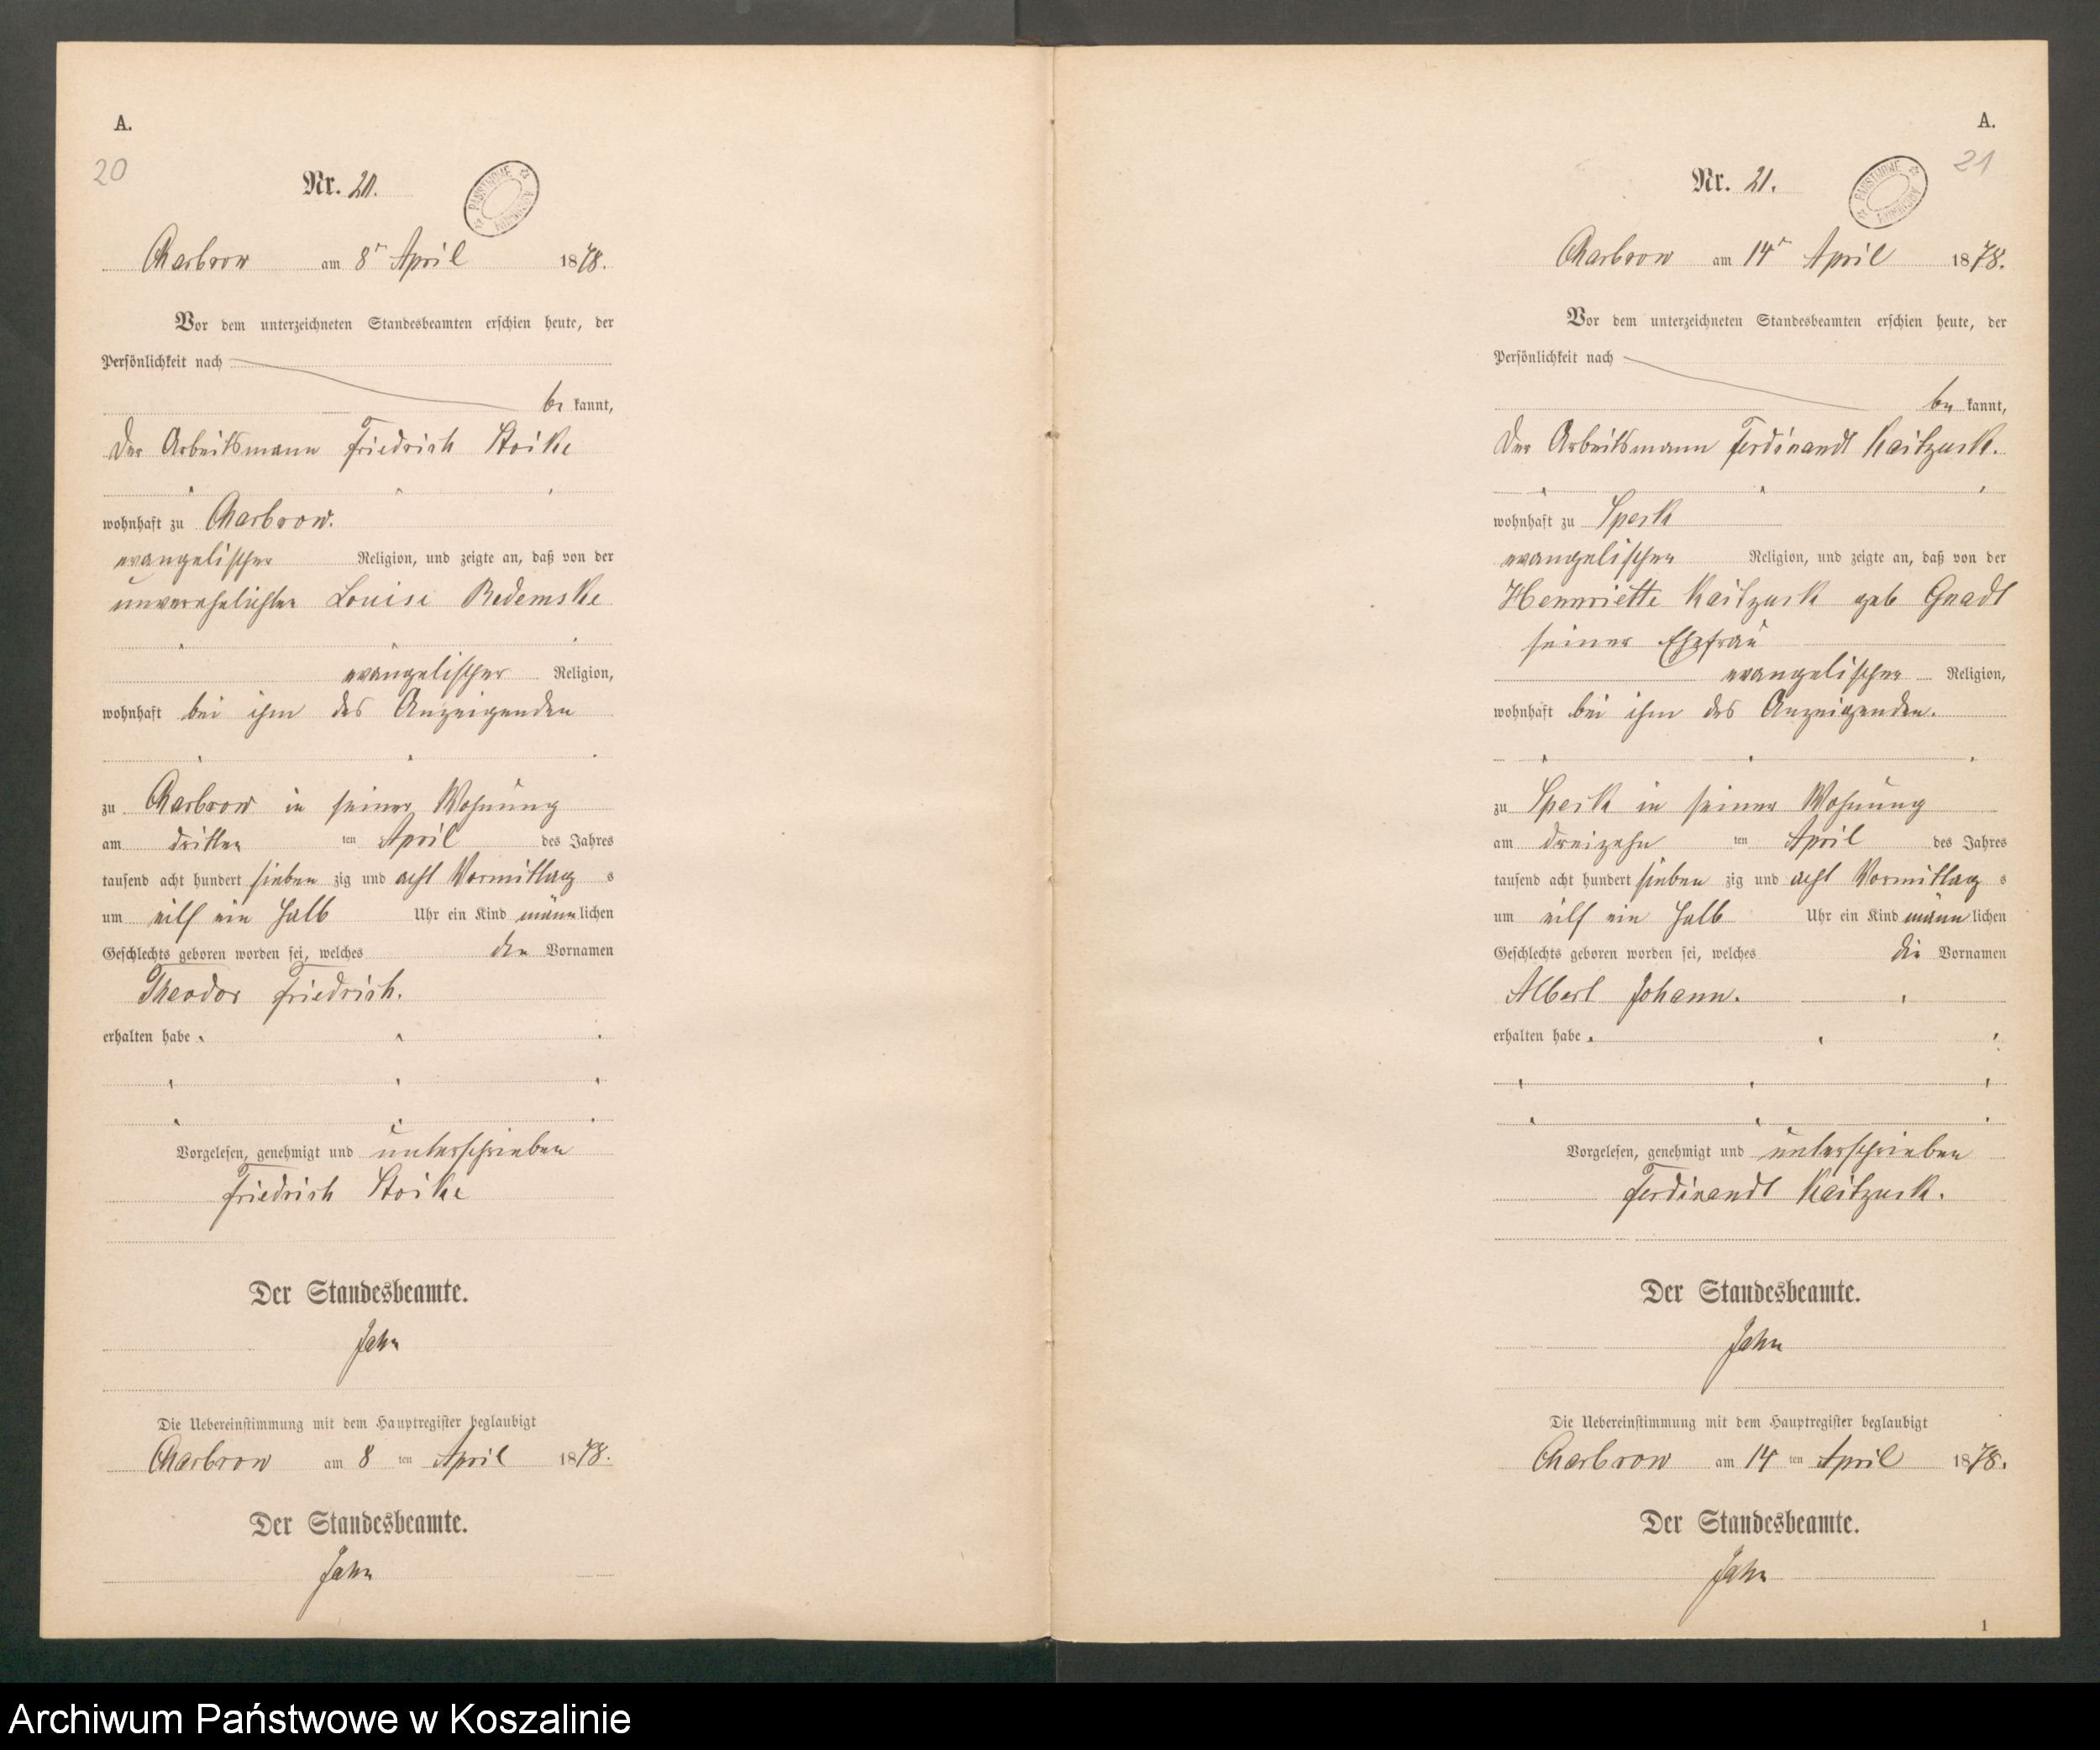 A.
20
Nr. 20.
PAŃSTWOWE ARCHIWUM
Charbrow am 8t April 1878.
Vor dem unterzeichneten Standesbeamten erschien heute, der
Persönlichkeit nach
be kannt,
der Arbeitsmann Friedrich Stoike
wohnhaft zu Charbrow.
evangelischer Religion, und zeigte an, daß von der
unverehelichten Louise Redemske
evangelischer Religion,
wohnhaft bei ihm des Anzeigenden
zu Charbrow in seiner Wohnung
am dritten ten April des Jahres
tausend acht hundert sieben zig und acht Vormittag s
um eilf ein halb Uhr ein Kind männlichen
Geschlechts geboren worden sei, welches den Vornamen
Theodor Friedrich.
erhalten habe
Vorgelesen, genehmigt und unterschrieben
Friedrich Stoike
Der Standesbeamte.
Jahn
Die Uebereinstimmung mit dem Hauptregister beglaubigt
Charbrow am 8 ten April 1878.
Der Standesbeamte.
Jahn
A.
21
Nr. 21.
PAŃSTWOWE ARCHIWUM
Charbrow am 14t April 1878.
Vor dem unterzeichneten Standesbeamten erschien heute, der
Persönlichkeit nach
be kannt,
der Arbeitsmann Ferdinandt Kaitzuck.
wohnhaft zu Speck
evangelischer Religion, und zeigte an, daß von der
Hennriette Kaitzuck geb Gnadt
seiner Ehefrau
evangelischer Religion,
wohnhaft bei ihm des Anzeigenden.
zu Speck in seiner Wohnung
am dreizehn ten April des Jahres
tausend acht hundert sieben zig und acht Vormittag s
um eilf ein halb Uhr ein Kind männ lichen
Geschlechts geboren worden sei, welches die Vornamen
Albert Johann.
erhalten habe
Vorgelesen, genehmigt und unterschrieben
Ferdinandt Kaitzuck.
Der Standesbeamte.
Jahn
Die Uebereinstimmung mit dem Hauptregister beglaubigt
Charbrow am 14 ten April 1878.
Der Standesbeamte.
Jahn
1
Archiwum Państwowe w Koszalinie